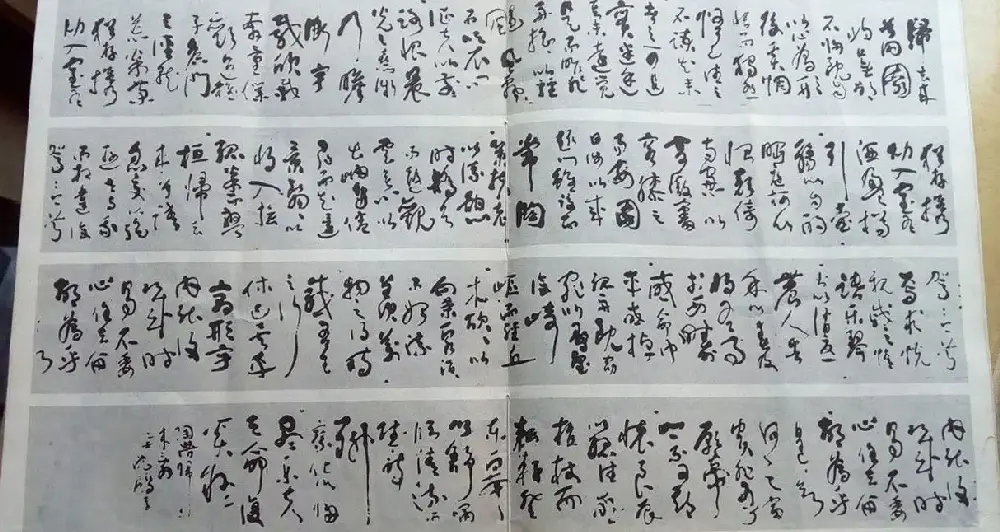 歸去來
兮田園
將蕪胡
不歸既自
以心為形
役奚惆
悵而獨悲
悟已往之
不諫知來
者之可追
實迷途
其未遠覺
今是而昨非
舟遙遙以輕
颺風飄飄
而吹衣問
征夫以前
路恨晨
光之熹微
乃瞻
衡宇
載欣載
奔僮僕
歡迎稚
子候門
三徑就
荒松菊
猶存攜
幼入室有
猶存攜
幼入室有
酒盈樽
引壺
觴以自酌
眄庭柯以
怡顏倚
南窗以
寄傲審
容膝之
易安園
日涉以成
趣門雖設而
常關
策扶老
以流憩
時矯首
而遐觀
雲無心以
出岫鳥倦
飛而知還
景翳翳以
將入撫
孤松盤
桓歸去
來兮請
息交以絕
遊世與我
而相違復
駕言兮
駕言兮
焉求悅
親戚之情
話樂琴
書以消憂
農人告
余以春及
將有事
於西疇
或命巾
車或棹
孤舟既窈
窕以尋壑
亦崎
嶇而經丘
木欣欣以
向榮泉涓
涓而始流
善萬
物之得時
感吾生
之行
休已矣乎
寓形宇
內復幾
時曷不委
心任去留
胡為乎
內復幾
時
曷不委
心任去留
胡為乎
遑遑欲
何之富
貴非吾
願帝鄉
不可期
懷良辰
以孤往或
植杖而
耘耔登
東皋
以舒嘯
臨清流而
賦詩
聊乘
化以歸
盡樂夫
天命復
奚疑